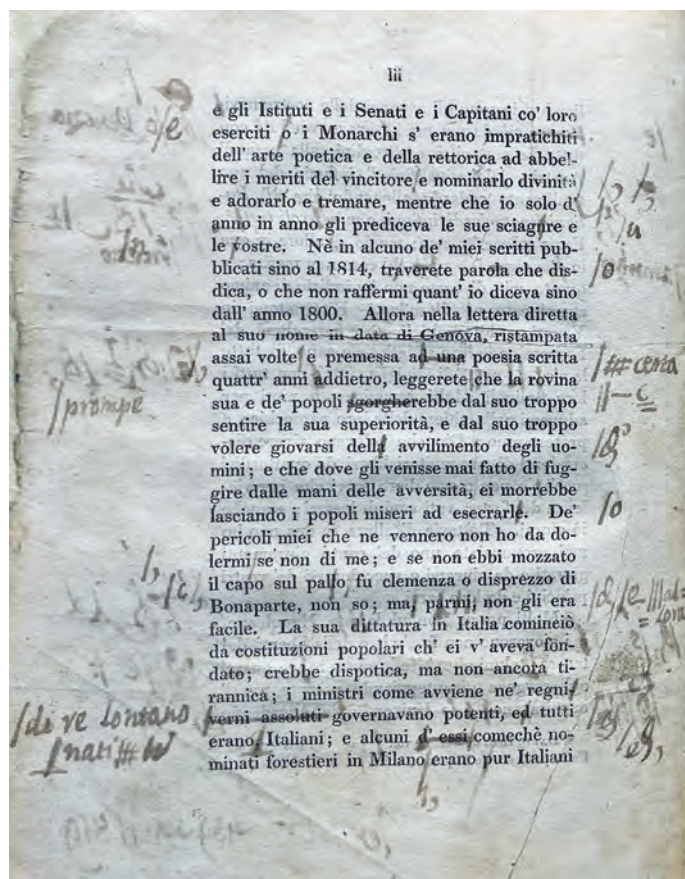 lii
e gli Istituti e i Senati e i Capitani co' loro
eserciti o i Monarchi s' erano impratichiti
dell' arte poetica e della rettorica ad abbel-
lire i meriti del vincitore e nominarlo divinità
e adorarlo e tremare, mentre che io solo d'
anno in anno gli prediceva le sue sciagure e
le vostre. Nè in alcuno de' miei scritti pub-
blicati sino al 1814, traverete parola che dis-
dica, o che non raffermi quant' io diceva sino
dall' anno 1800. Allora nella lettera diretta
al suo nome in data di Genova, ristampata
assai volte e premessa ad una poesia scritta
/# certa
quattr' anni addietro, leggerete che la rovina
sua e de' popoli sgorgherebbe dal suo troppo
/prompe
sentire la sua superiorità, e dal suo troppo
volere giovarsi della avvilimento degli uo-
mini; e che dove gli venisse mai fatto di fug-
gire dalle mani delle avversità, ei morrebbe
lasciando i popoli miseri ad esecrarle. De'
/o
pericoli miei che ne vennero non ho da do-
lermi se non di me; e se non ebbi mozzato
il capo sul pallo, fu clemenza o disprezzo di
Bonaparte, non so; ma, parmi, non gli era
facile. La sua dittatura in Italia comineiò
da costituzioni popolari ch' ei v' aveva fon-
dato; crebbe dispotica, ma non ancora ti-
rannica; i ministri come avviene ne' regni
/di re lontano
verni assoluti governavano potenti, ed tutti
/nati #
erano, Italiani; e alcuni d' essi comechè no-
minati forestieri in Milano erano pur Italiani